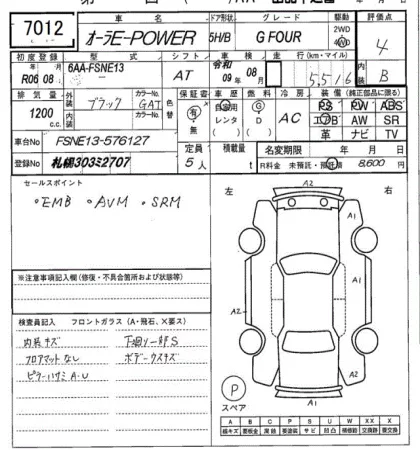 7012
車名 ドア形状 グレード 駆動 評価点
オーラE-POWER 5H/B G FOUR 2WD 4WD 4
初度登録 型式 シフト 車検 走行(km・マイル) 内装
R06年08月 6AA-FSNE13 AT 令和09年08月 5,516 B
排気量 外装 カラーNo. 色替 保証書 車歴 燃料 冷房 装備(純正部品に限る)
1200c.c. ブラック GAT 有・無 自家用 レンタ ( ) G D ( ) AC PS PW ABS
内装 カラーNo. エアB AW SR
革 ナビ TV
車台No FSNE13-576127 定員 積載量 名変期限 年 月 日
登録No 札幌303ミ2707 5人 t R料金 未預託・預託済 8,600円
セールスポイント
・EMB ・AVM ・SRM
左 右
A2
A1
A1
A2
A2
A1
※注意事項記入欄(修復・不具合箇所および状態等)
検査員記入 フロントガラス(A・飛石、X要ス)
内装キズ 下廻り一部S
フロアマットなし ボデーウスキズ
ピラーハサミA-U
P
スペア
A B C P S U W XX X
線キズ 要板金 腐蝕 要塗装 サビ 凹凸 補修跡 交換跡 要交換